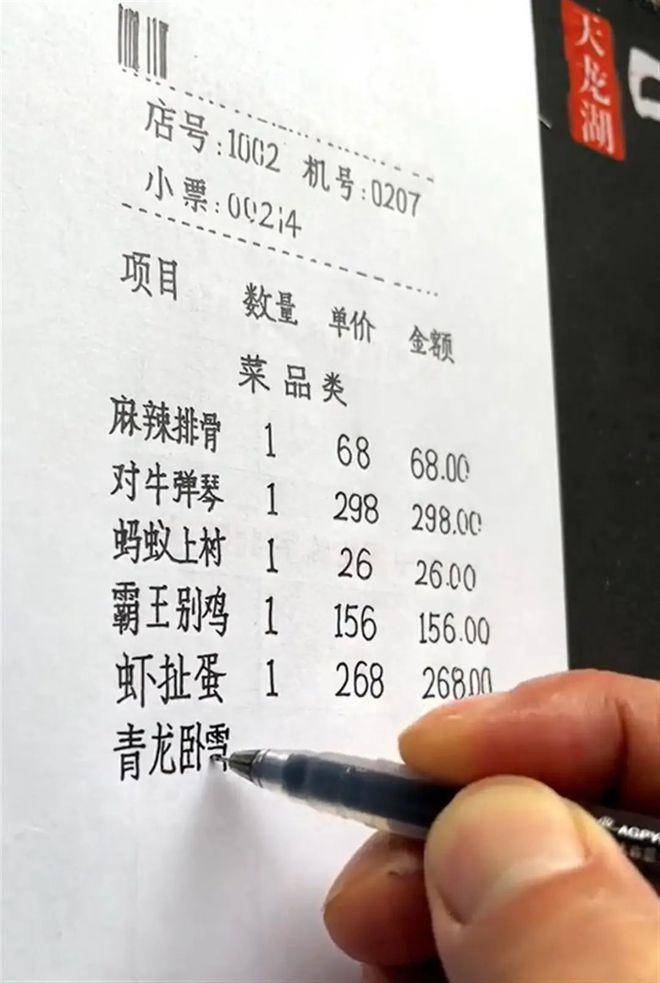 店号:1002 机号:0207
小票:00214
项目 数量 单价 金额
菜品类
麻辣排骨 1 68 68.00
对牛弹琴 1 298 298.00
蚂蚁上树 1 26 26.00
霸王别鸡 1 156 156.00
虾扯蛋 1 268 268.00
青龙卧雪
天龙湖